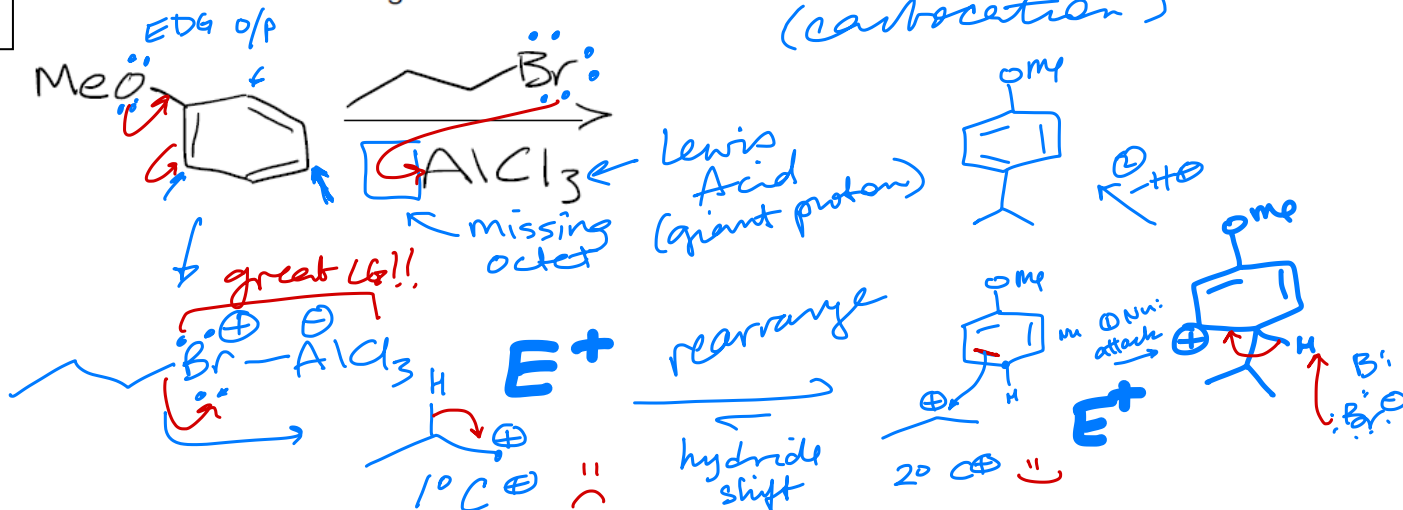 EDG o/p
(carbocation)
MeO
Br
AlCl3
Lewis
Acid
(giant proton)
missing
octet
OMe
② -H⊕
great LG!!
⊕ ⊖
Br—AlCl3
H
⊕
1° C⊕
E+
rearrange
hydride
shift
OMe
H
⊕
2° C⊕
① Nu:
attack
E+
OMe
⊕
H
B:
Br ⊖